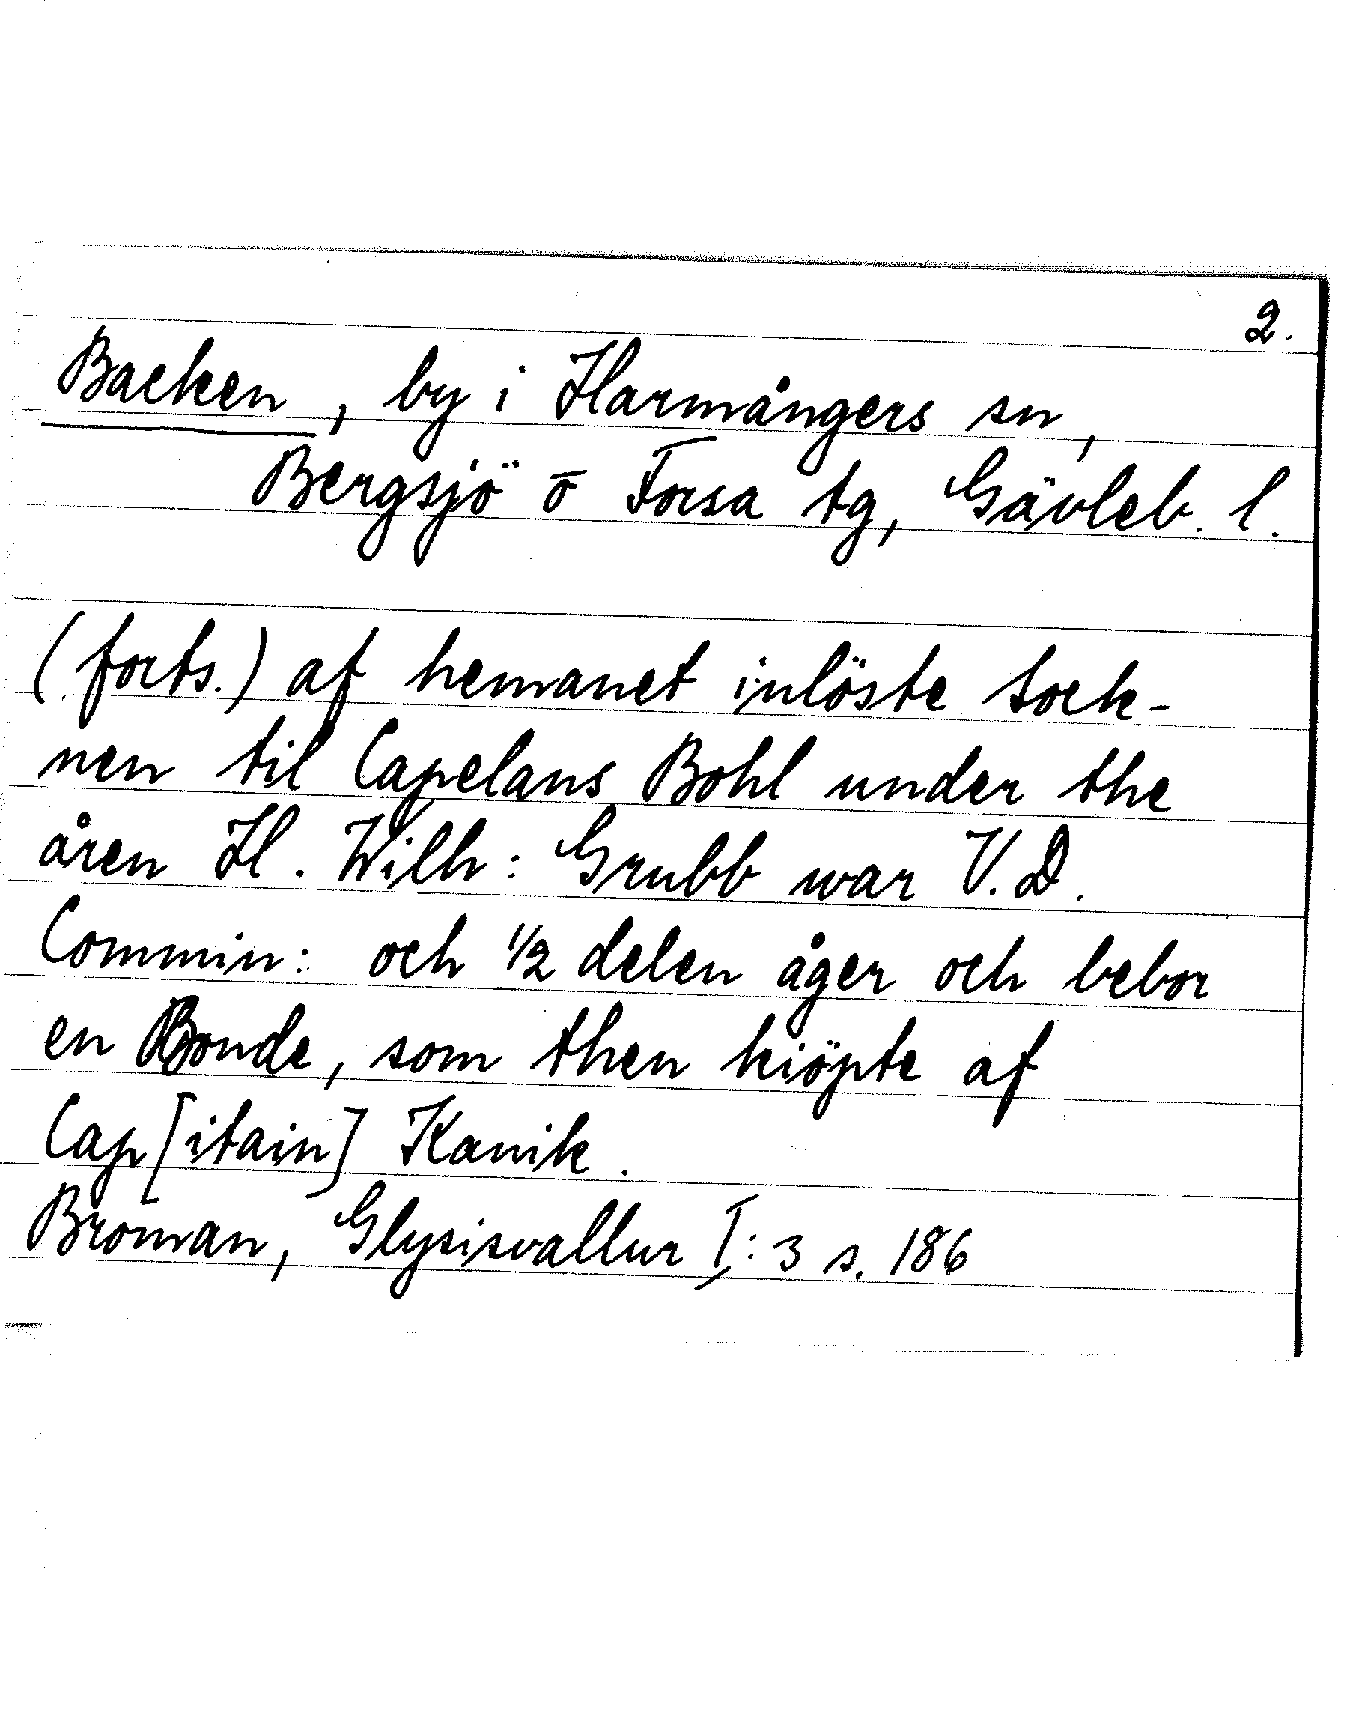 2.
Backen, by i Harmångers sn,
Bergsjö o Forsa tg, Gävleb. l.
(forts.) af hemanet inlöste sock-
nen til Capelans Bohl under the
åren H. Wilh: Grubb war V.D.
Commin: och 1/2 delen åger och bebor
en Bonde, som then kiöpte af
Cap[itain] Kanik.
Broman, Glysisvallur I:3 s. 186